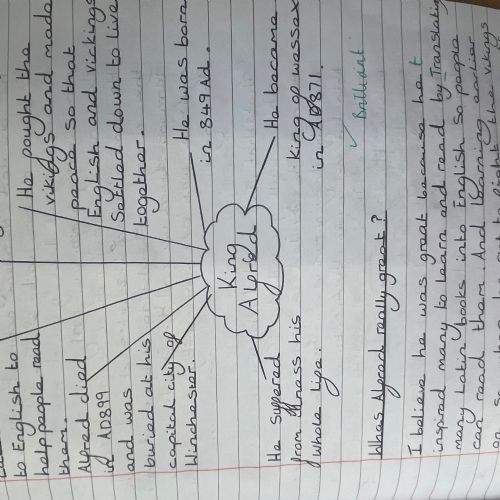 to English to
help people read
them.
He fought the
vikings and made
peace so that
English and vickings
Settled down to live
together.
Alfred died
in AD899
and was
buried at his
capital city of
Winchester.
He was born
in 849Ad.
King
Alfred
He suffered
from illness his
whole life.
He became
King of wessex
in AD871.
Brilliant
Whas Alfred really great?
I believe he was great because hat
inspired many to learn and read by Translating
many Latin books into English so people
can read them. And learning earlier
on so fight the vikings